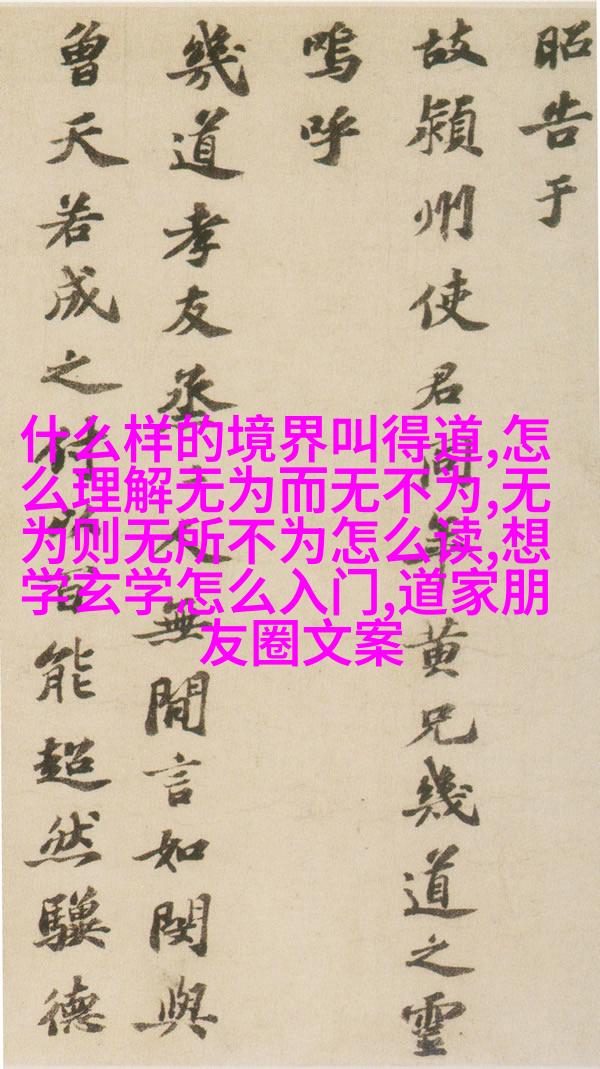 昭告于
故潁州使君同年黄兄幾道之靈
嗚呼
幾道孝友烝人無間言如閔與
曾天若成之付百能超然驥德
什么样的境界叫得道,怎
么理解无为而无不为,无
为则无所不为怎么读,想
学玄学怎么入门,道家朋
友圈文案